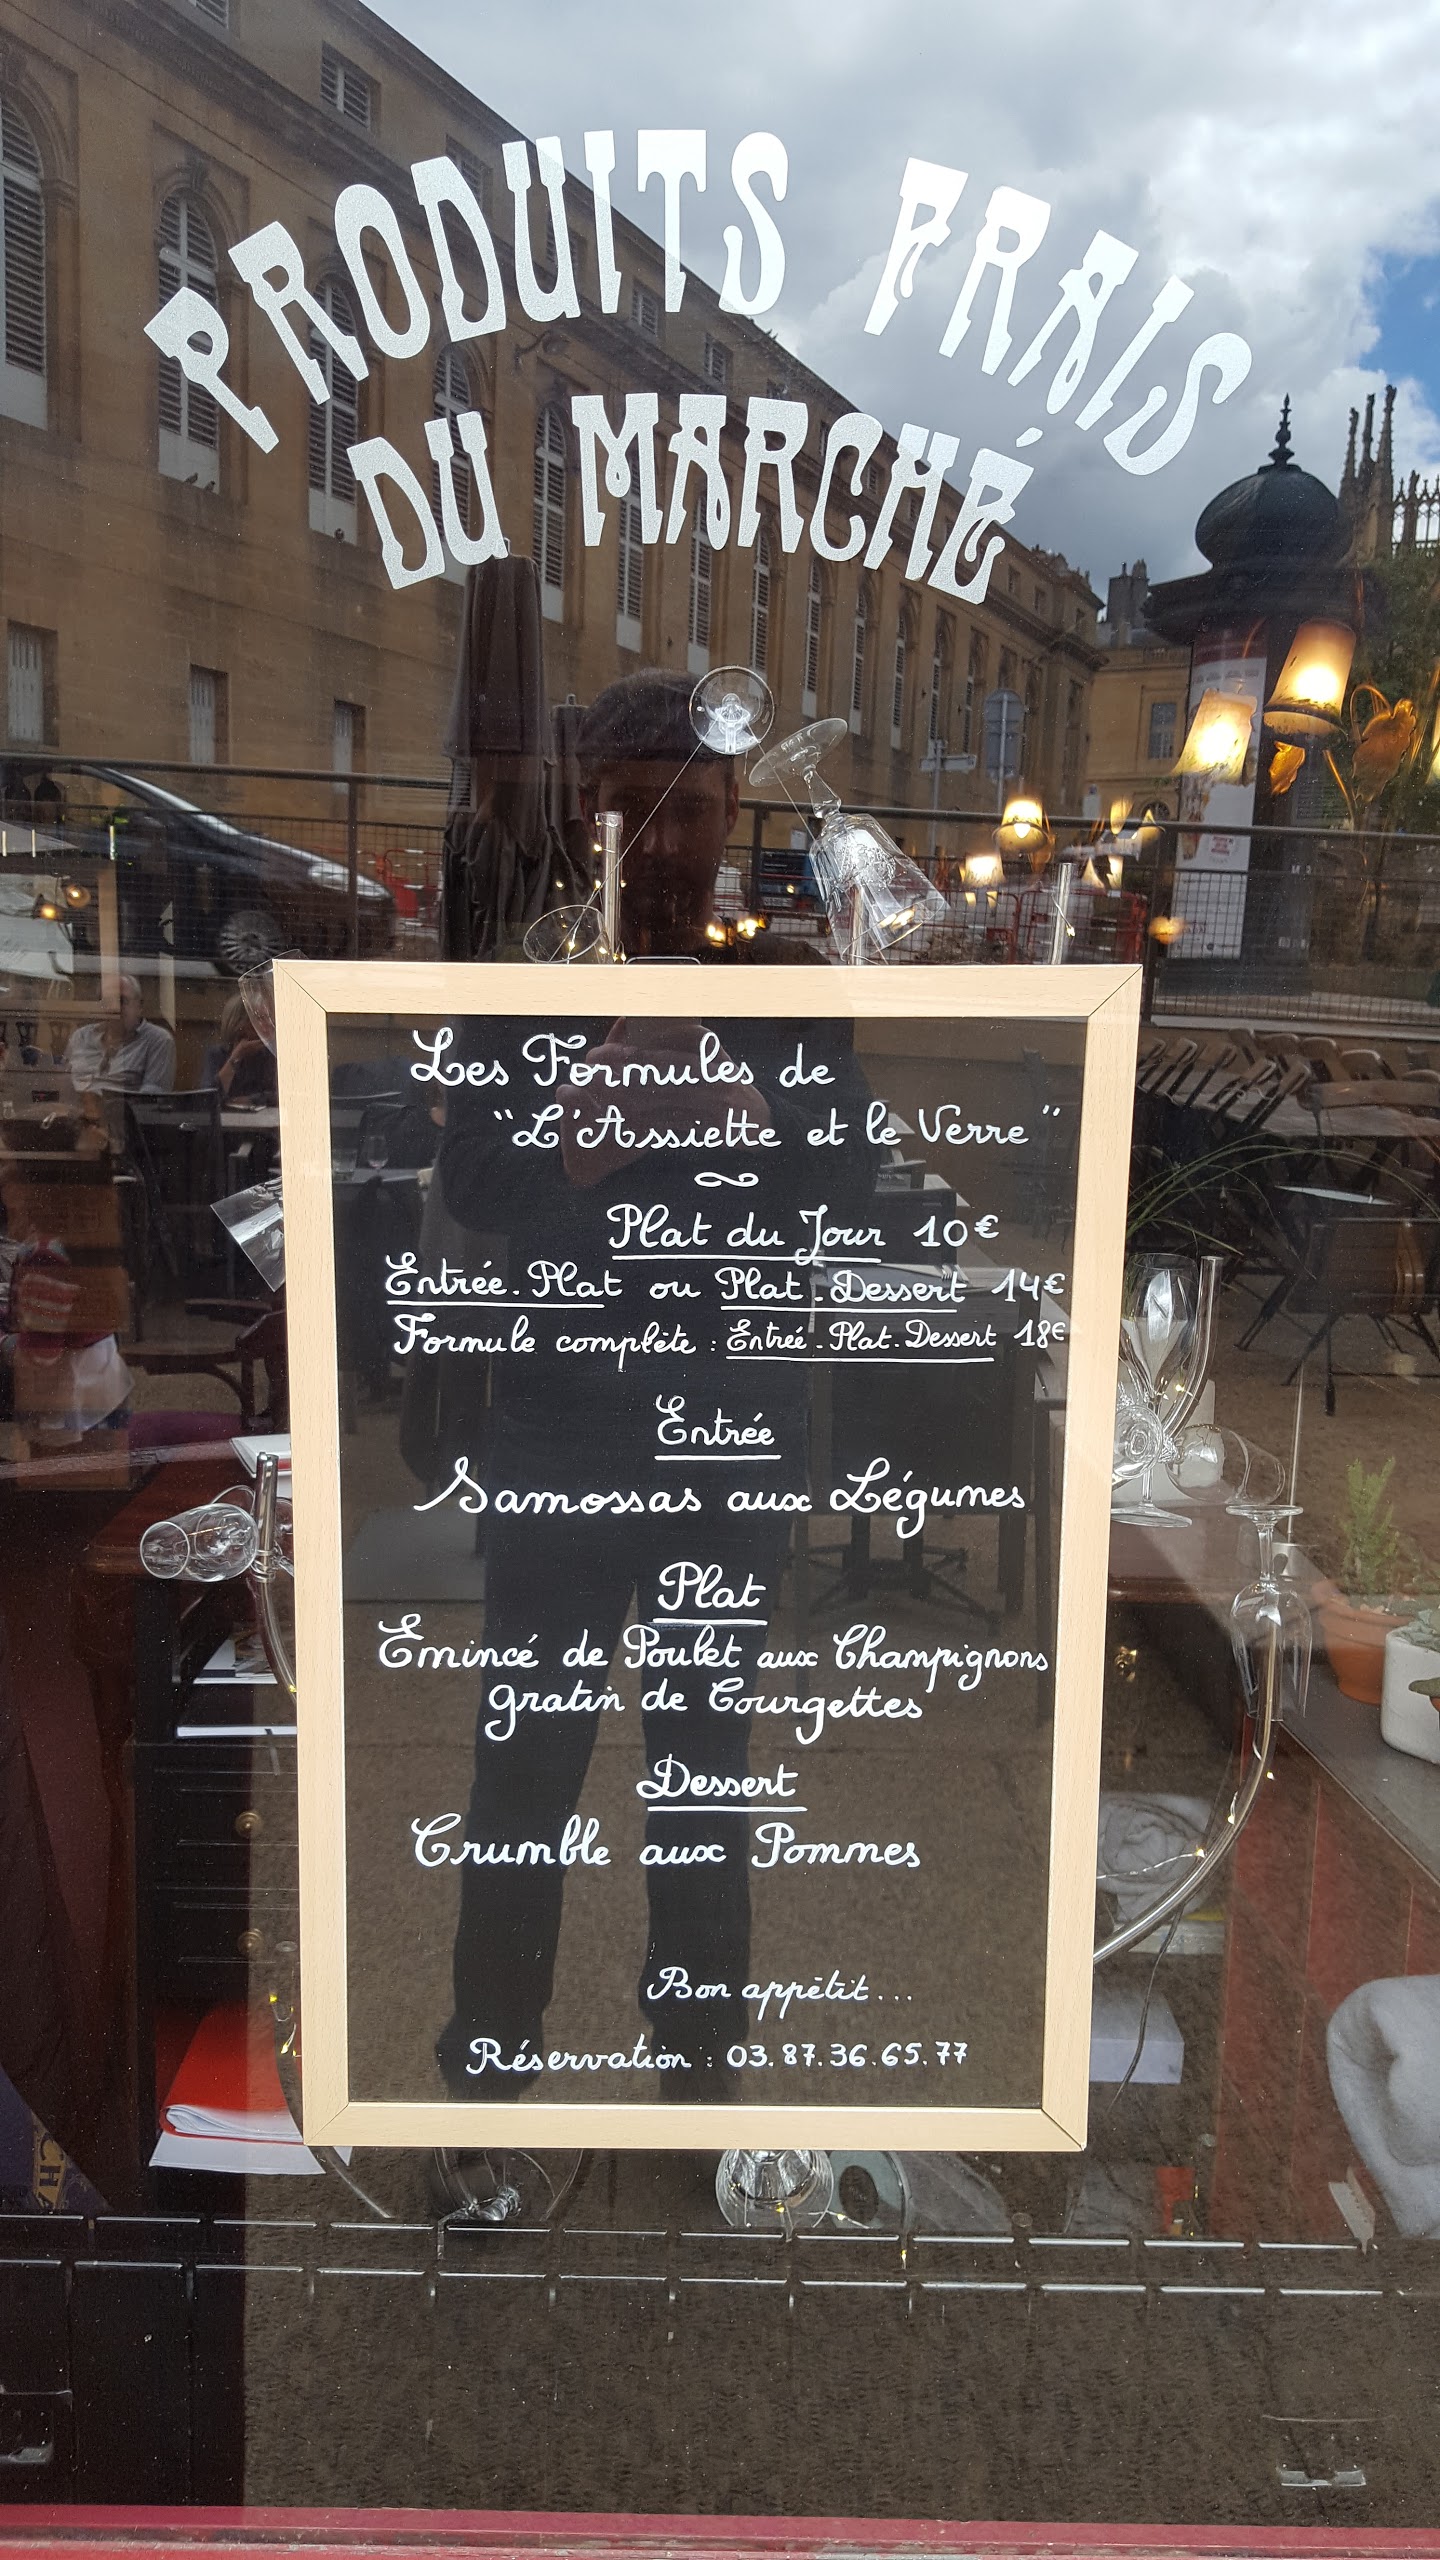 PRODUITS FRAIS
DU MARCHÉ
Les Formules de
"L'Assiette et le Verre"
Plat du Jour 10€
Entrée. Plat ou Plat. Dessert 14€
Formule complète : Entrée. Plat. Dessert 18€
Entrée
Samossas aux Légumes
Plat
Emincé de Poulet aux Champignons
gratin de Courgettes
Dessert
Crumble aux Pommes
Bon appétit...
Réservation : 03.87.36.65.77